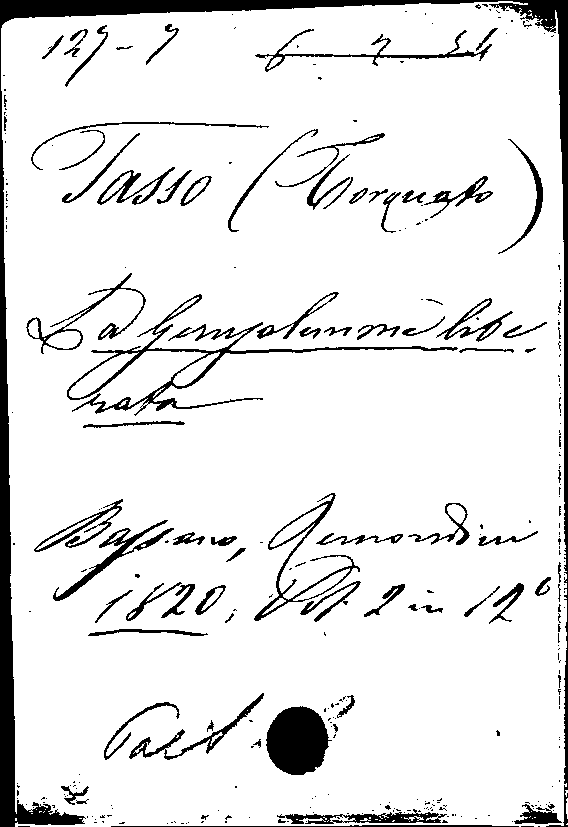 127-7 6 7 34
Tasso (Torquato)
La Gerusalemme libe-
rata
Bassano, Remondini
1820, Vol. 2 in 12°